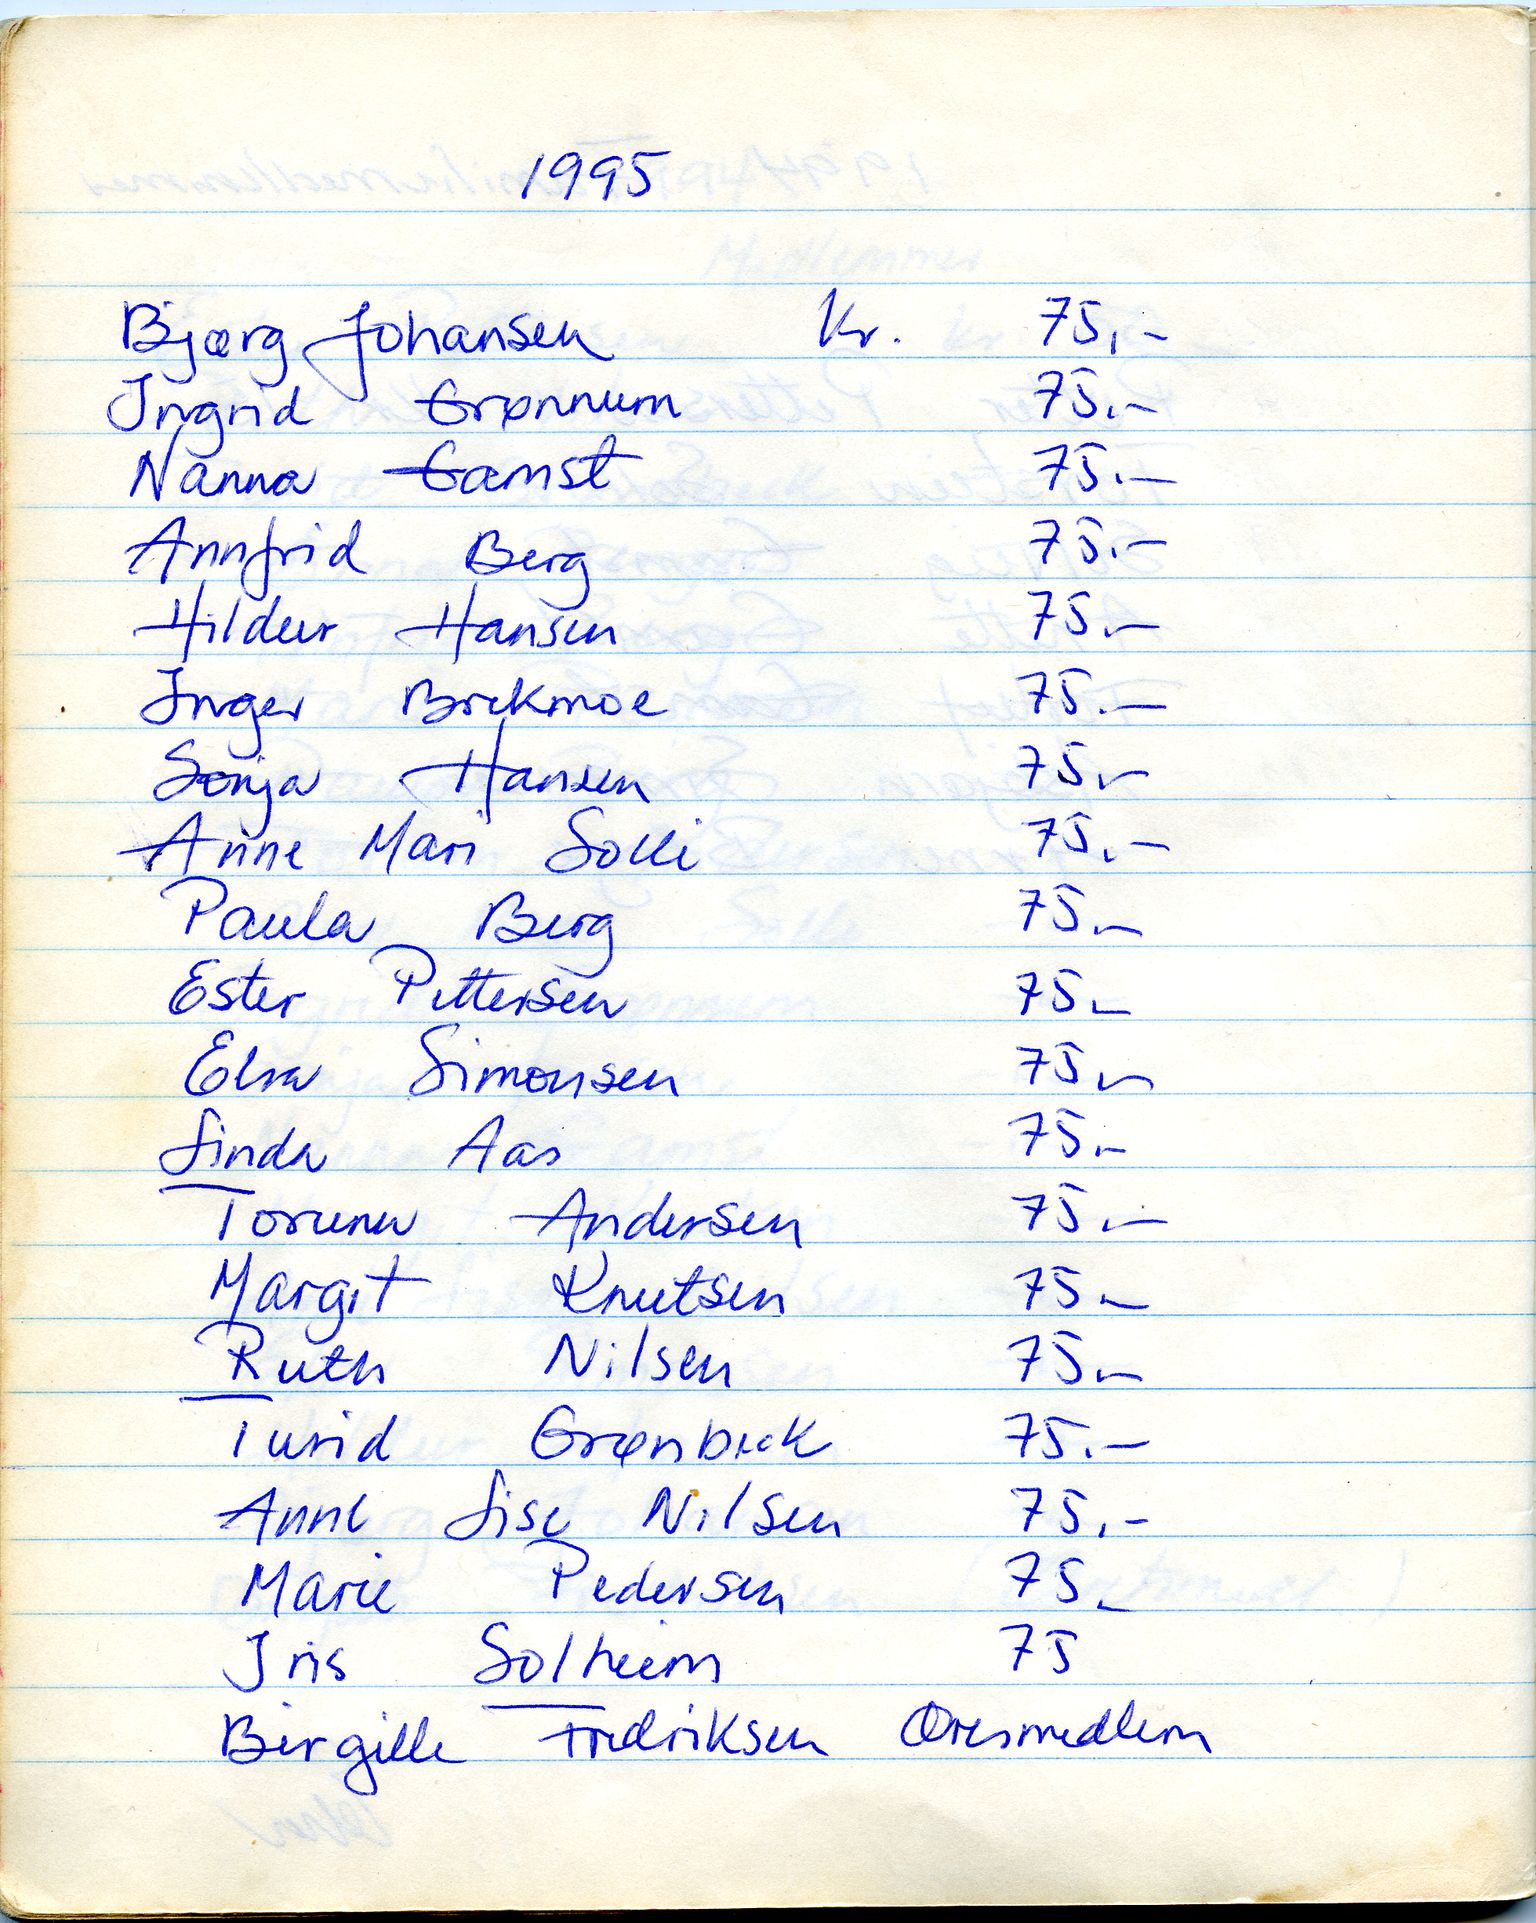 1995
Bjørg Johansen Kr. 75,-
Ingrid Grønnum 75.-
Nanna Gamst 75.-
Annfrid Berg 75.-
Hildur Hansen 75.-
Inger Brekmoe 75.-
Sonja Hansen 75.-
Anne Mari Solli 75.-
Paula Berg 75.-
Ester Pettersen 75.-
Elsa Simonsen 75.-
Linda Aas 75.-
Torunn Andersen 75.-
Margit Knutsen 75.-
Ruth Nilsen 75.-
Turid Grønbeck 75.-
Anne Lise Nilsen 75,-
Marie Pedersen 75.-
Iris Solheim 75
Birgitte Fredriksen Æresmedlem